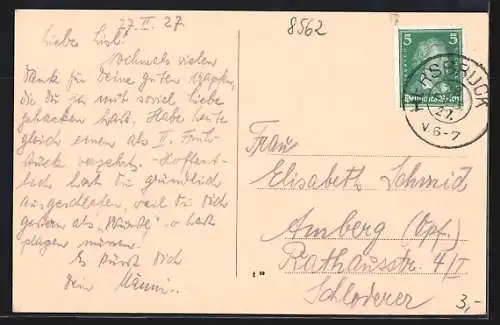 27. II. 27.
8562
Liebe Lisl.
Nochmals vielen
Dank für Deine guten
die Du ja mit soviel Liebe
gebacken hast. Habe heute
gleich einen als II. Früh-
stück verzehrt. Hoffent-
lich hast Du gründlich
ausgeschlafen, weil Du Dich
gestern als so hast
plagen müssen.
Es küsst Dich
Dein Männi..
5 5
Deutsches Reich
HERSBRUCK
27.
V. 6-7
Frau
Elisabeth Schmid
Amberg (Opf.)
Rathausstr. 4/I
Schloderer
3,-